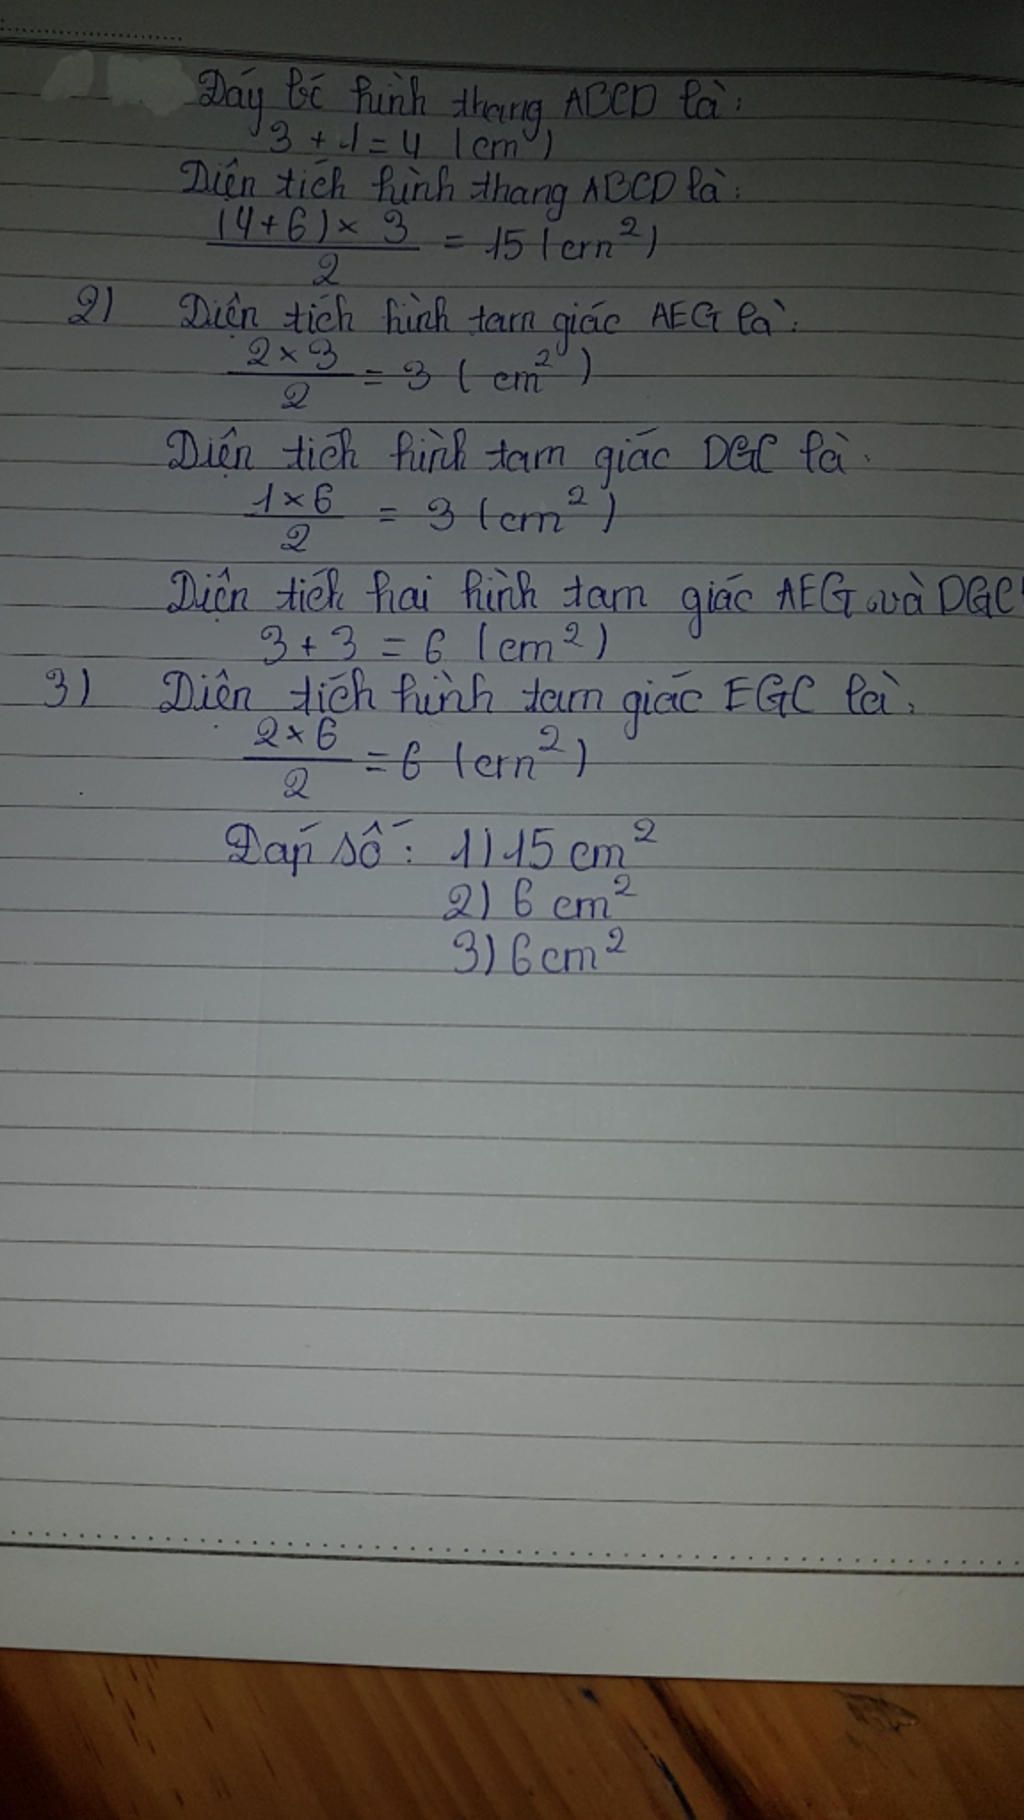 Đáy bé hình thang ABCD là:
3 + 1 = 4 (cm)
Diện tích hình thang ABCD là:
(4+6) × 3 / 2 = 15 (cm²)
2) Diện tích hình tam giác AEG là:
2 × 3 / 2 = 3 (cm²)
Diện tích hình tam giác DGC là:
1 × 6 / 2 = 3 (cm²)
Diện tích hai hình tam giác AEG và DGC
3 + 3 = 6 (cm²)
3) Diện tích hình tam giác EGC là:
2 × 6 / 2 = 6 (cm²)
Đáp số: 1) 15 cm²
2) 6 cm²
3) 6 cm²